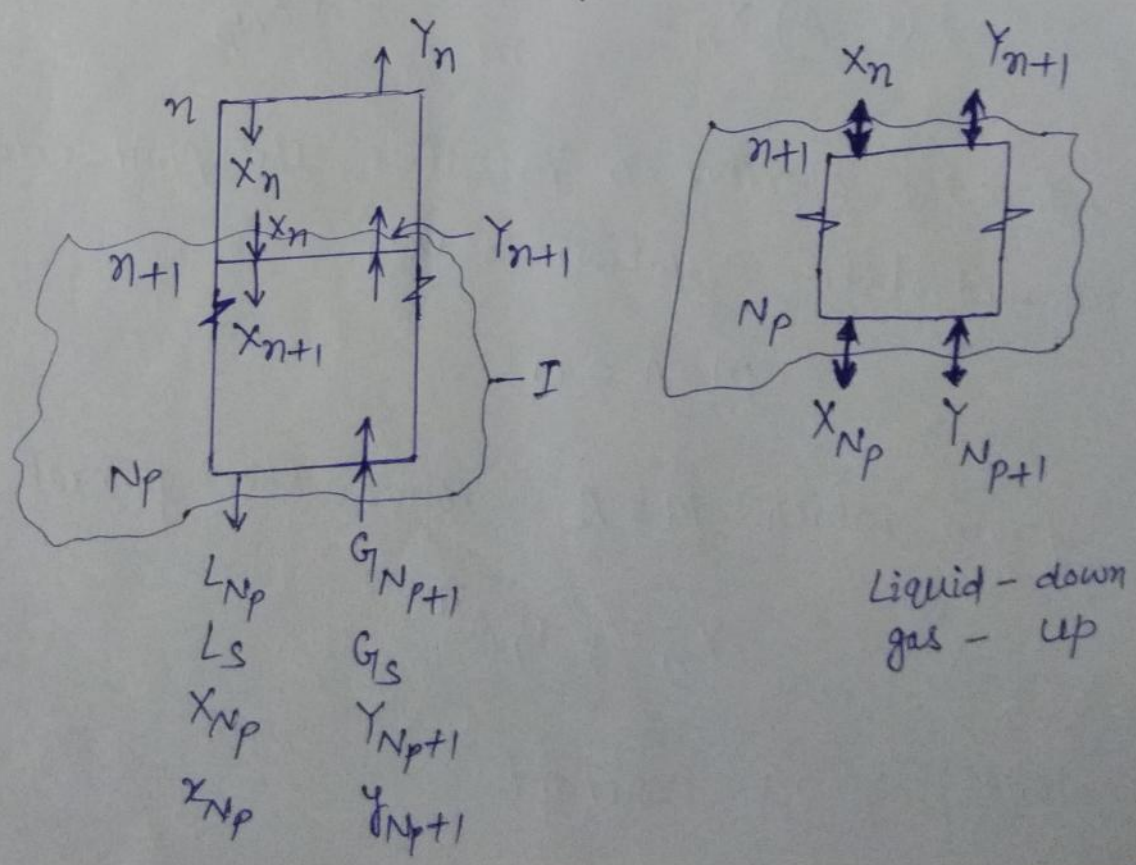 Yn
n
Xn
Xn
Yn+1
n+1
Xn+1
I
Np
LNp
GNp+1
Ls
Gs
XNp
YNp+1
xNp
yNp+1
Xn
Yn+1
n+1
Np
XNp
YNp+1
Liquid - down
gas - up